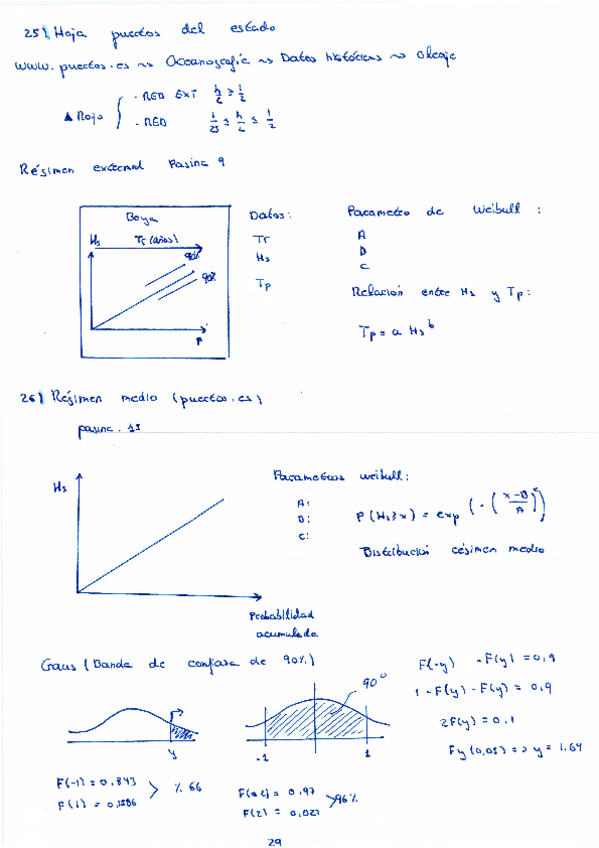 25) Hoja puertos del estado
www.puertos.es ~> Oceanografía ~> Datos históricos ~> Oleaje
▲ Rojo { · RED EXT h/L > 1/2
· RED 1/25 ≤ h/L ≤ 1/2
Régimen extremal Pasina 9
Boya
Hs Tr (años)
90%
90%
P
Datos:
Tr
Hs
Tp
Parametro de Weibull :
A
B
C
Relación entre Hs y Tp:
Tp = a Hs^b
26) Régimen medio (puertos.es)
pasina. 15
Hs
Probabilidad
acumulada
Parametros weibull:
A:
B:
C:
P(Hs≥x) = exp (-((x-B)/A)^c)
Distribución régimen medio
Gaus (Banda de confiaza de 90%)
y
90°
-1 1
F(-1) = 0,843
F(1) = 0,1586 > % 66
F(-2) = 0,97
F(2) = 0,027 > 96%
F(-y) - F(y) = 0,9
1 - F(y) - F(y) = 0,9
2F(y) = 0,1
Fy (0,05) => y = 1,64
29